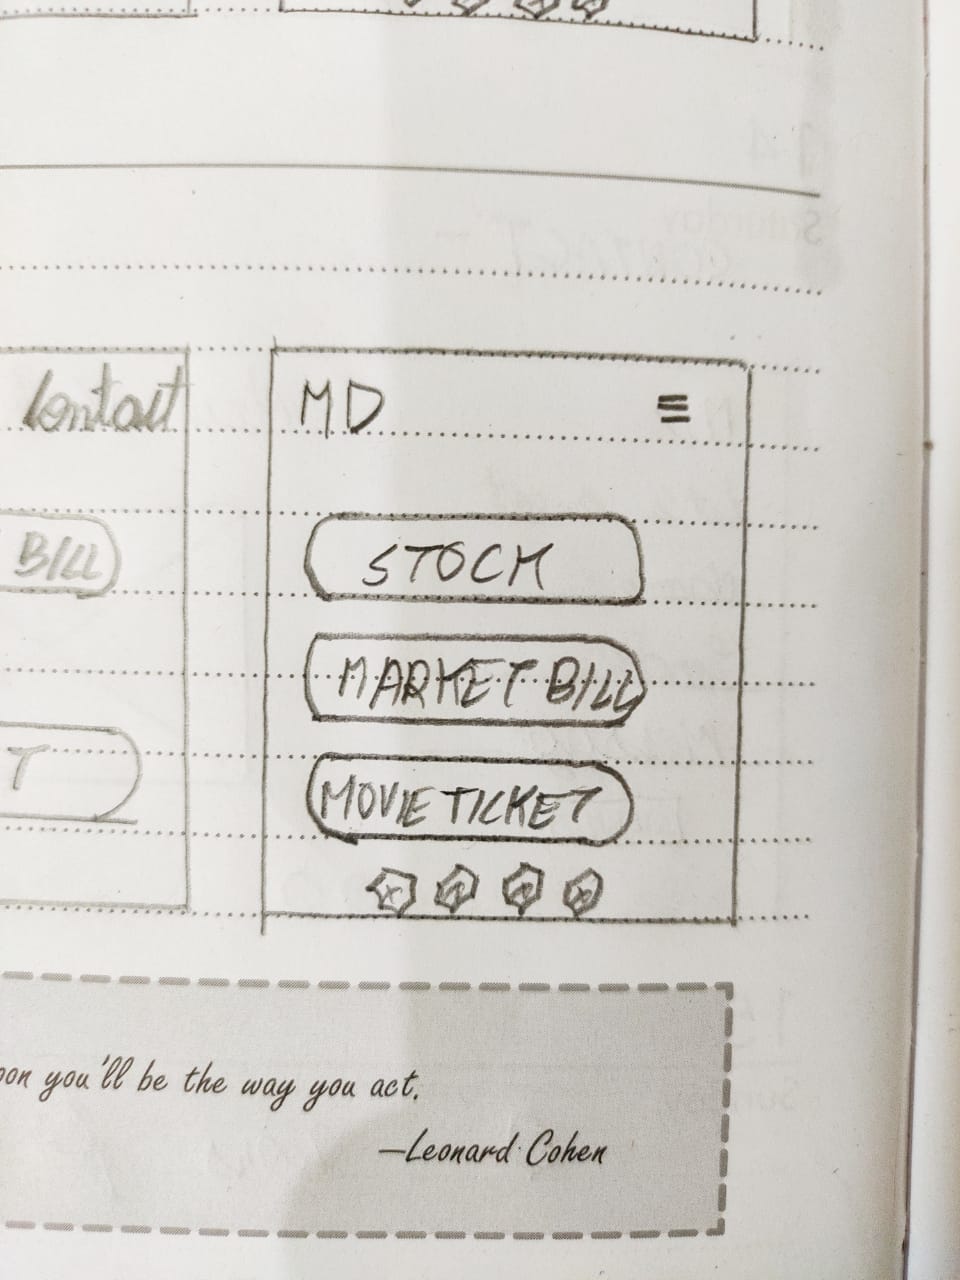 Contact
MD
BILL
STOCK
MARKET BILL
T
MOVIE TICKET
oon you'll be the way you act.
—Leonard Cohen